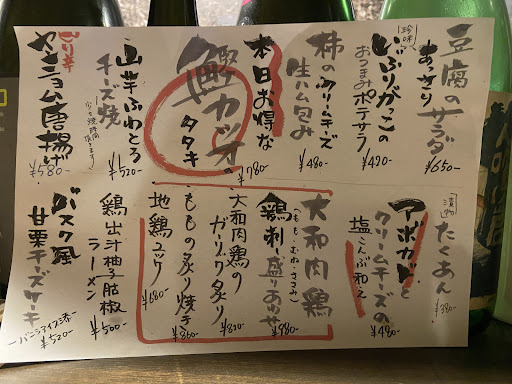 豆腐のサラダ
あっさり
¥650-
珍味
いぶりがっこの
おつまみポテサラ
¥420-
柿のクリームチーズ
生ハム包み
¥480-
本日お得な
鰹カツオの
タタキ
¥780-
山芋ふわとろ
チーズ焼
¥520-
ピリ辛
ヤンニョム唐揚げ
¥580-
漬物
たくあん
¥380-
アボカドと
クリームチーズの
塩こんぶ和え
¥480-
大和肉鶏
(もも・むね・ささみ)
鶏刺し盛りあわせ
¥980-
大和肉鶏の
ガーリック炙り
¥820-
ももの炙り焼き
¥860-
地鶏ユッケ
¥680-
鶏出汁柚子胡椒
ラーメン
¥500-
バスク風
甘栗チーズケーキ
—バニラアイス添—
¥520-